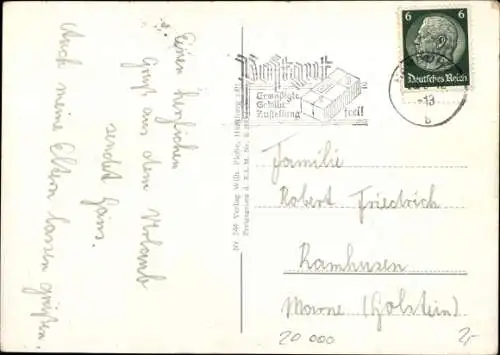 Einen herzlichen
Gruß aus dem Urlaub
sendet Hans.
Auch meine Eltern lassen grüßen
Nr. 244 Verlag Wilh.
Postgut
Ermäßigte
Gebühr
Zustellung
frei!
6 6
Deutsches Reich
-13
b
Familie
Robert Friedrich
Ramhusen
Marne (Holstein)
20 000
2,-